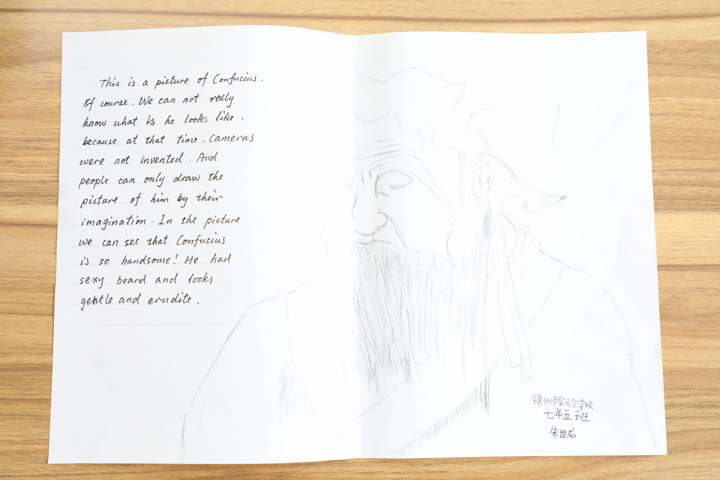 This is a picture of Confucius.
Of course. We can not really
know what is he looks like.
because at that time. Cameras
were not invented. And
people can only draw the
picture of him by their
imagination. In the picture
we can see that Confucius
is so handsome! He had
sexy beard and looks
gentle and erudite.
锦州市宝马仑学校
七年五班
朱世龙